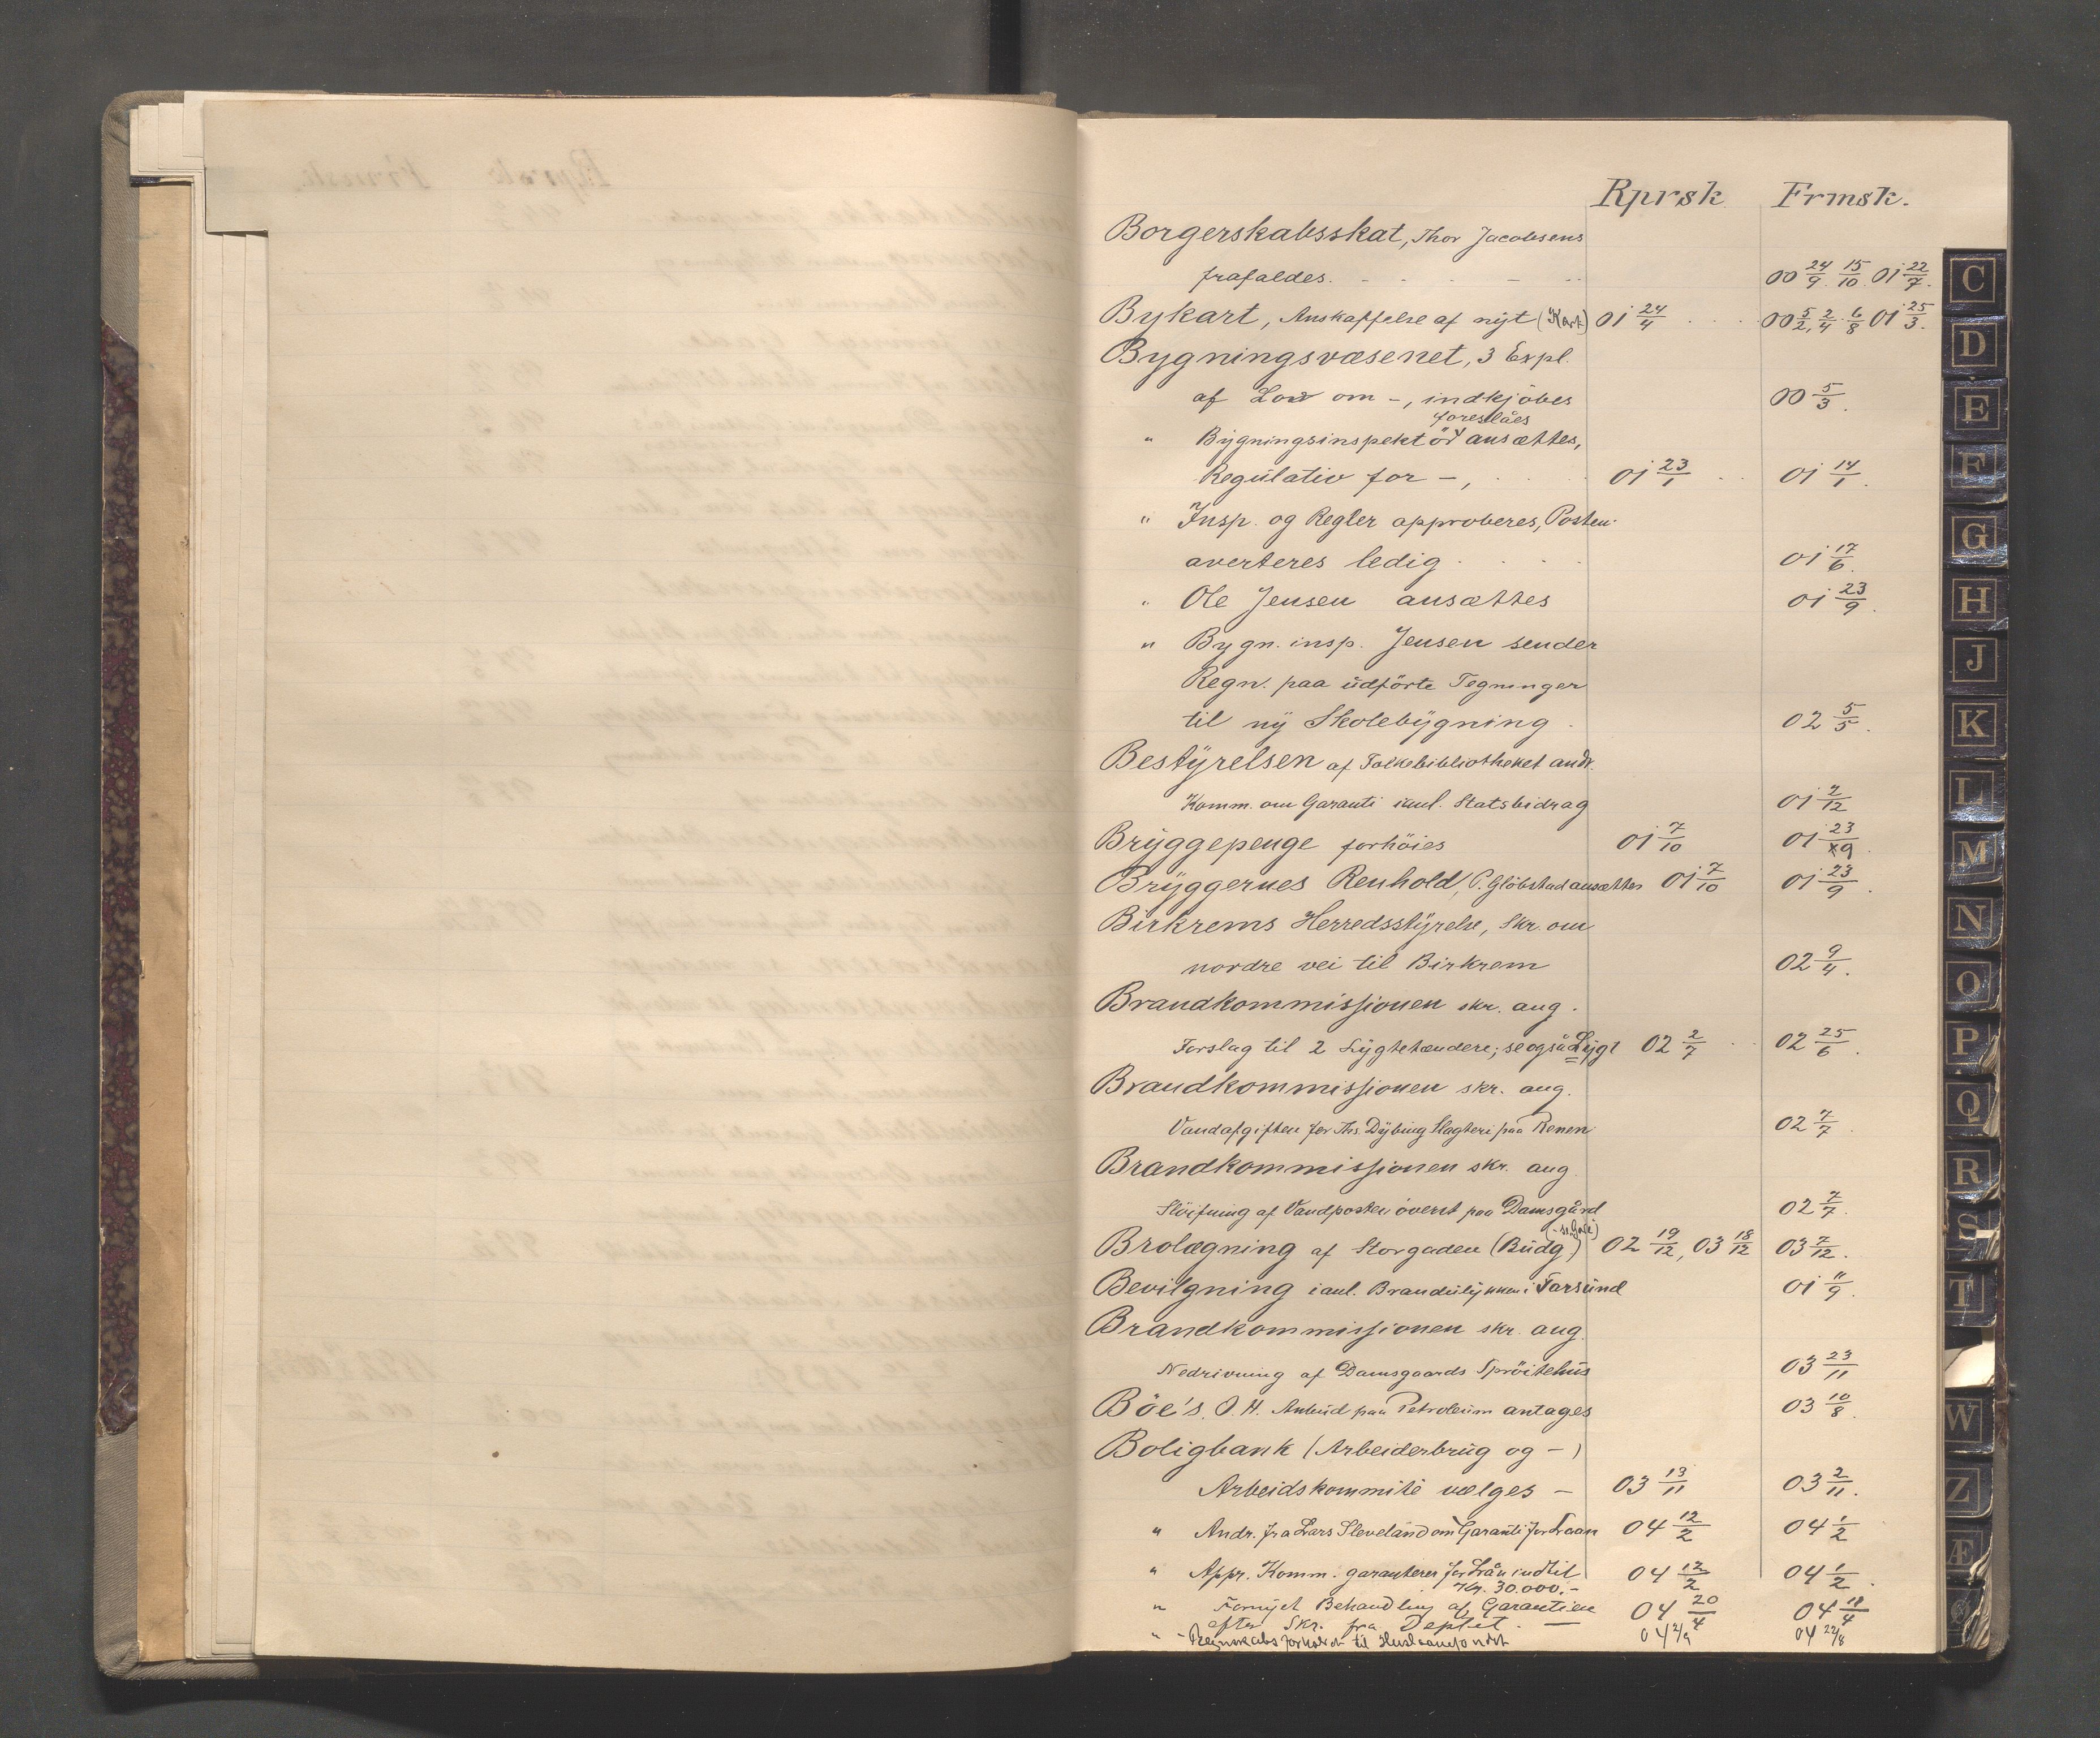 Rprsk Frmsk.
Borgerskabsskat, Thor Jacobsens
frafaldes. 00 24/9. 15/10. 01 22/7.
Bykart, Anskaffelse af nyt (Kart) 01 24/4 00 5/2, 2/4. 6/8 01 25/3.
Bygningsvæsenet, 3 Expl.
af Lov om -, indkjöbes 00 5/3.
foreslåes
" Bygningsinspektör ansættes,
Regulativ for -, 01 23/1 01 14/1.
" Insp. og Regler approberes, Posten
averteres ledig 01 17/6.
" Ole Jensen ansættes 01 23/9.
" Bygn. insp. Jensen sender
Regn. paa udförte Tegninger
til ny Skolebygning 02 5/5.
Bestyrelsen af Folkebibliotheket andr.
Komm. om Garanti ianl. Statsbidrag 01 2/12
Bryggepenge forhöies 01 7/10 01 23/9.
Bryggernes Renhold, P. Glöbstad ansættes 01 7/10 01 23/9.
Birkrems Herredsstyrelse, Skr. om
nordre vei til Birkrem 02 9/4.
Brandkommissionen skr. ang.
Forslag til 2 Lygtetændere; se også Lygt 02 2/7 02 25/6.
Brandkommissionen skr. ang.
Vandafgiften for Ths. Dybing Slagteri paa Renen 02 7/7.
Brandkommissionen skr. ang.
Slöifning af Vandposten överst paa Damsgård 02 7/7.
Brolægning af Storgaden (Budg.) 02 19/12, 03 18/12 03 7/12.
Bevilgning ianl. Brandulykken i Farsund 01 11/9.
Brandkommissionen skr. ang.
Nedrivning af Damsgaards Spröitehus 03 23/11
Böe's, O. H. Anbud paa Petroleum antages 03 10/8.
Boligbank (Arbeiderbrug og -)
Arbeidskommité vælges - 03 13/11 03 2/11.
" Andr. fra Lars Sleveland om Garanti for Laan 04 12/2 04 1/2
" Appr. Komm. garanterer for Lån indtil 04 12/2 04 1/2.
Kr. 30.000.-
" Fornyet Behandling af Garantien 04 20/4 04 18/4
efter Skr. fra Deptet. -
" - Regnskabsforholdet til 04 2/9 04 22/8
C
D
E
F
G
H
J
K
L
M
N
O
P
Q
R
S
T
W
Z
Æ
Ø